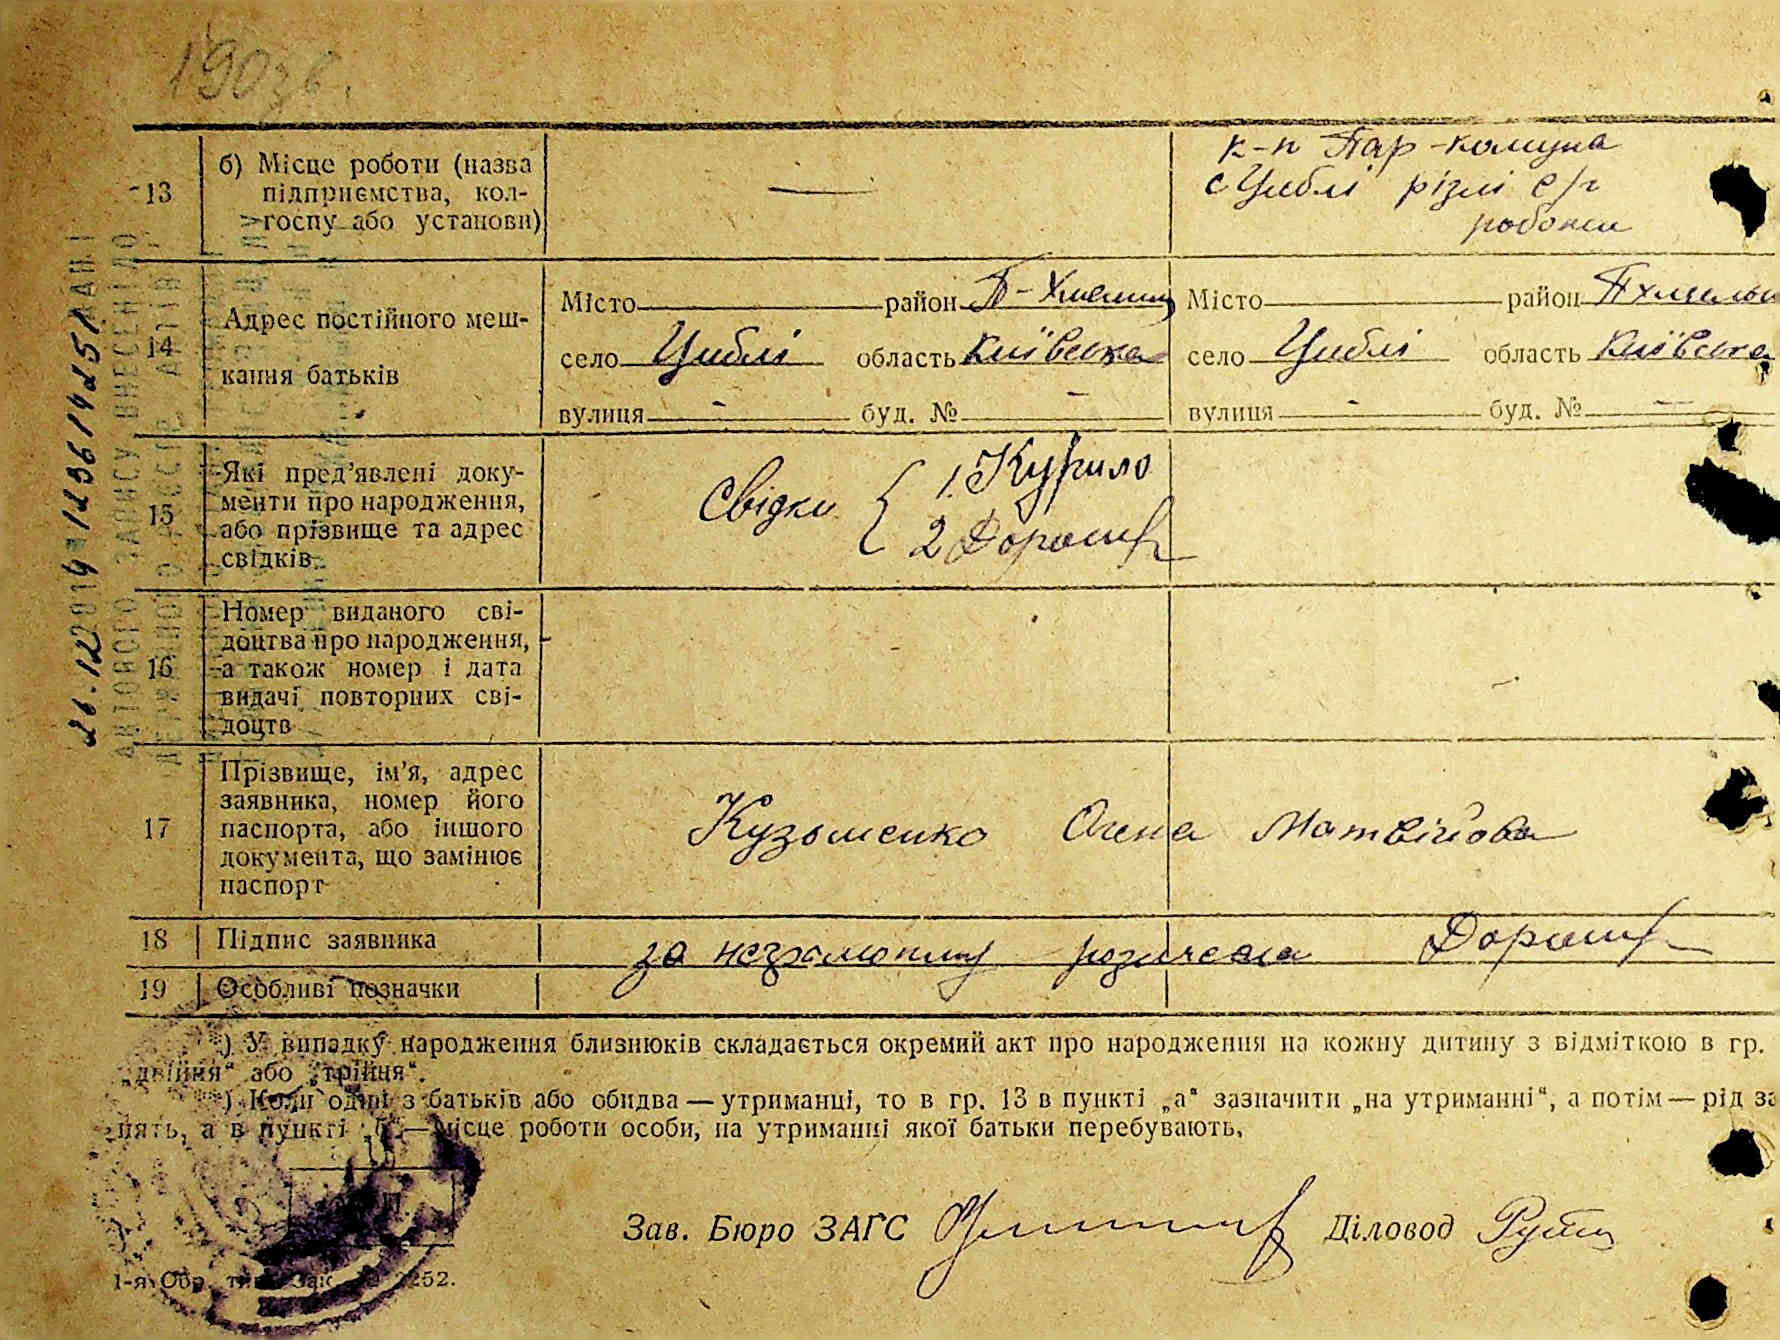 190зв.
13
б) Місце роботи (назва
підприємства, кол-
госпу або установи)
—
к-п Пар-комуна
с Циблі різні с/г
роботи
14
Адрес постійного меш-
кання батьків
Місто район П-Хмельниц
село Циблі область Київська
вулиця - буд. № -
Місто район ПХмельн
село Циблі область Київська
вулиця - буд. № —
15
Які пред'явлені доку-
менти про народження,
або прізвище та адрес
свідків
Свідки { 1. Курило
2 Дорош
16
Номер виданого сві-
доцтва про народження,
а також номер і дата
видачі повторних сві-
доцтв
17
Прізвище, ім'я, адрес
заявника, номер його
паспорта, або іншого
документа, що замінює
паспорт
Кузьменко Олена Матвійова
18 Підпис заявника
за неграмотну
19 Особливі позначки
) У випадку народження близнюків складається окремий акт про народження на кожну дитину з відміткою в гр.
„двійня“ або „трійня“.
) Коли одні з батьків або обидва — утриманці, то в гр. 13 в пункті „а“ зазначити „на утриманні“, а потім — рід за
нять, а в пункті „б“ — місце роботи особи, на утриманні якої батьки перебувають.
Зав. Бюро ЗАГС Діловод
1-я Обр. тип. Зак. 2252.